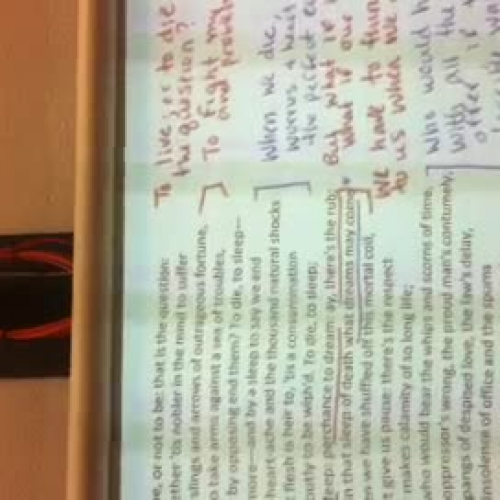 e, or not to be: that is the question:
ether 'tis nobler in the mind to suffer
slings and arrows of outrageous fortune,
o take arms against a sea of troubles,
by opposing end them? To die, to sleep—
ore—and by a sleep to say we end
heart-ache and the thousand natural shocks
flesh is heir to, 'tis a consummation
utly to be wish'd. To die, to sleep;
eep: perchance to dream: ay, there's the rub;
n that sleep of death what dreams may come
n we have shuffled off this mortal coil,
t give us pause: there's the respect
makes calamity of so long life;
who would bear the whips and scorns of time,
oppressor's wrong, the proud man's contumely,
pangs of despised love, the law's delay,
insolence of office and the spurns
To live; or to die
the question?
To fight my
and proble
When we die,
worries & heart
the perfect e
But what if
What if our
We have to thin
to us when we
Who would h
with all the